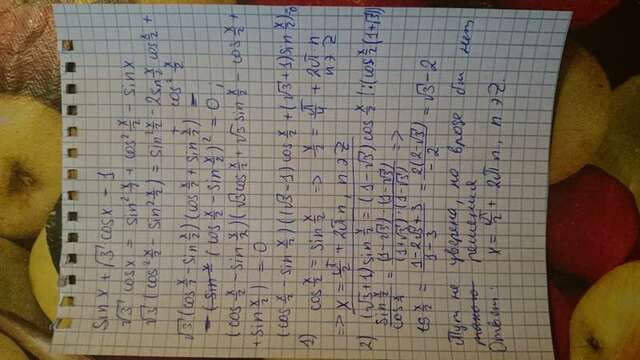 sin x + √3 cos x - 1
√3 cos x = sin² x/2 + cos² x/2 - sin x
√3 (cos² x/2 - sin² x/2) = sin² x/2 - 2 sin x/2 cos x/2 +
cos² x/2
√3 (cos x/2 - sin x/2)(cos x/2 + sin x/2) -
- (cos x/2 - sin x/2)² = 0;
(cos x/2 - sin x/2)(√3 cos x/2 + √3 sin x/2 - cos x/2 +
+ sin x/2) = 0
(cos x/2 - sin x/2)((√3-1) cos x/2 + (√3+1) sin x/2) = 0
1) cos x/2 = sin x/2 => x/2 = π/4 + 2πn
n ∋ Z
=> x = π/2 + 2πn, n ∋ Z
2) (√3+1) sin x/2 = (1-√3) cos x/2 |:(cos x/2 (1+√3))
sin x/2 / cos x/2 = (1-√3)(1-√3) / (1+√3)(1-√3) =>
tg x/2 = (1-2√3+3)/(1-3) = 2(2-√3)/-2 = √3-2
Тут не уверена, но вроде бы нет
решения
Ответ: x = π/2 + 2πn, n ∋ Z.